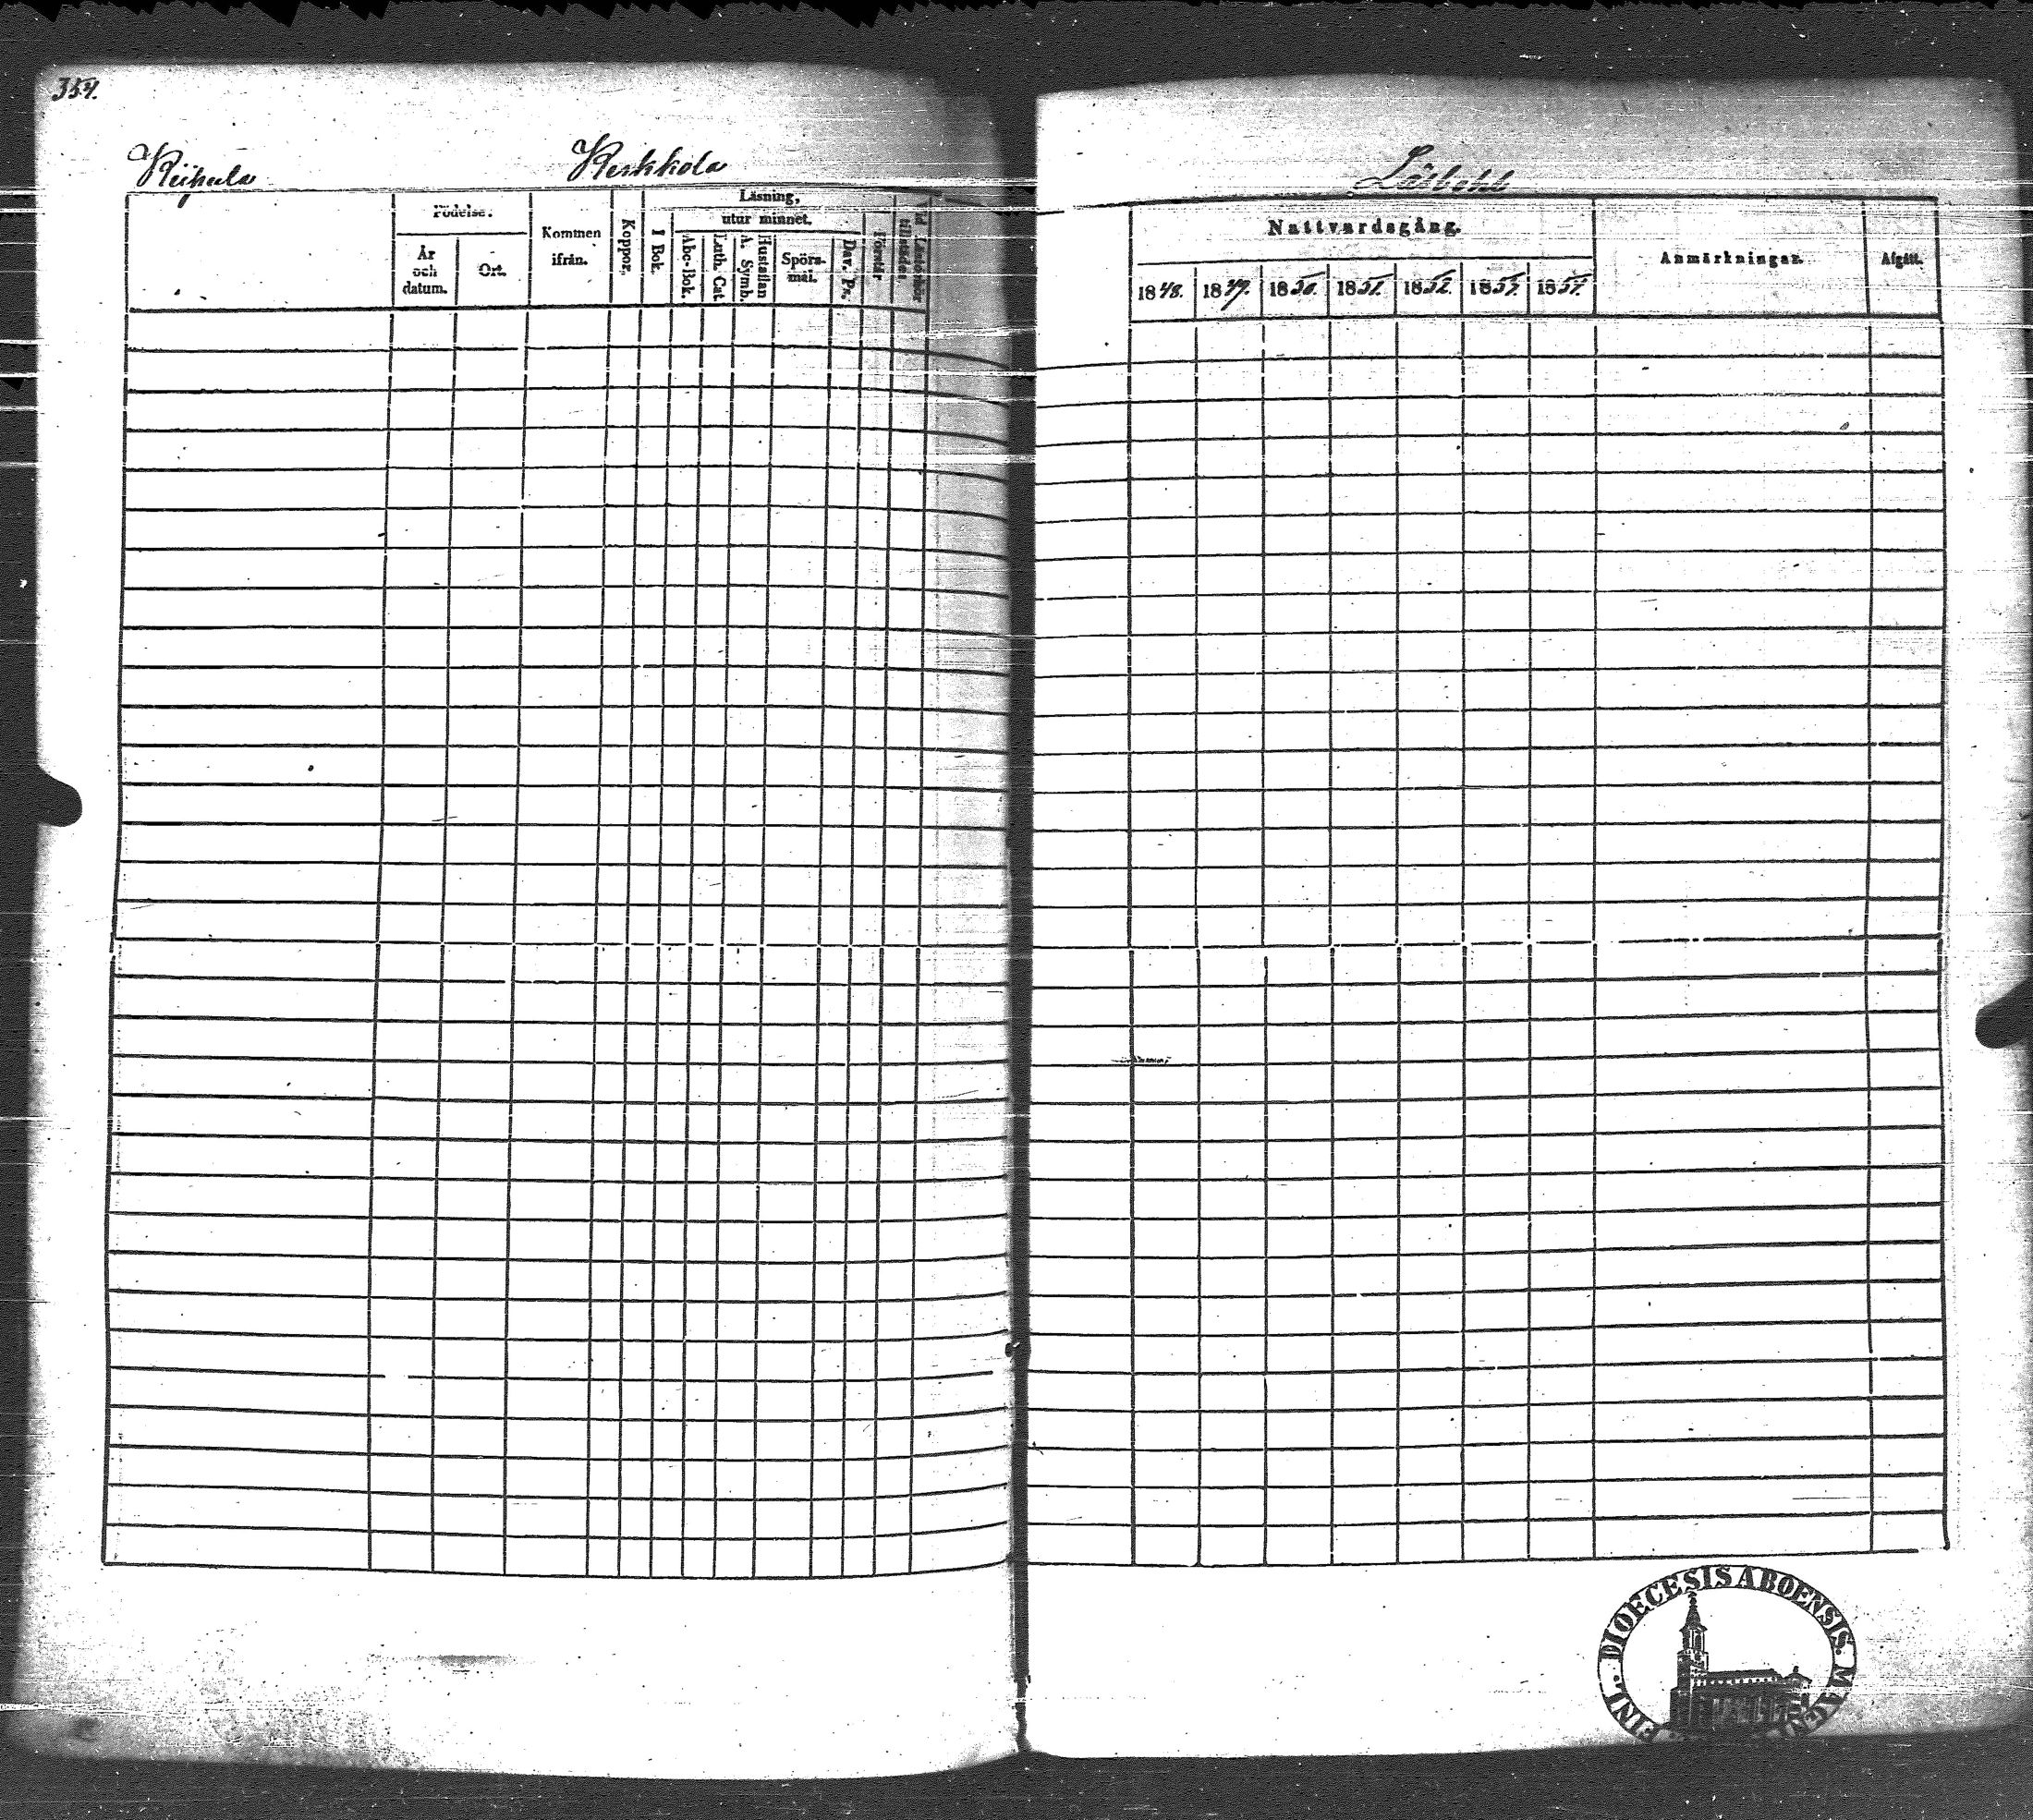 354.
Keihula
Kerkkola
Födelse.
År och datum.
Ort.
Kommen ifrån.
Koppor.
Läsning,
I Bok.
utur minnet.
Abc-Bok.
Luth. Cat.
Hustaflan
A. Symb.
Spörs-
mål.
Dav. Ps.
Förstår
Nattvardsgång.
1848. 1849. 1850. 1851. 1852. 1853. 1854.
Anmärkningar.
Afgått.
DIOECESIS ABOENSIS. MAGNI
FINL.